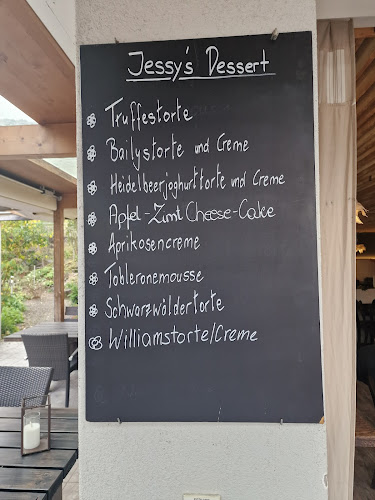 Jessy's Dessert
Truffestorte
Bailystorte und Creme
Heidelbeerjoghurttorte und Creme
Apfel-Zimt Cheese-Cake
Aprikosencreme
Tobleronemousse
Schwarzwäldertorte
Williamstorte/Creme